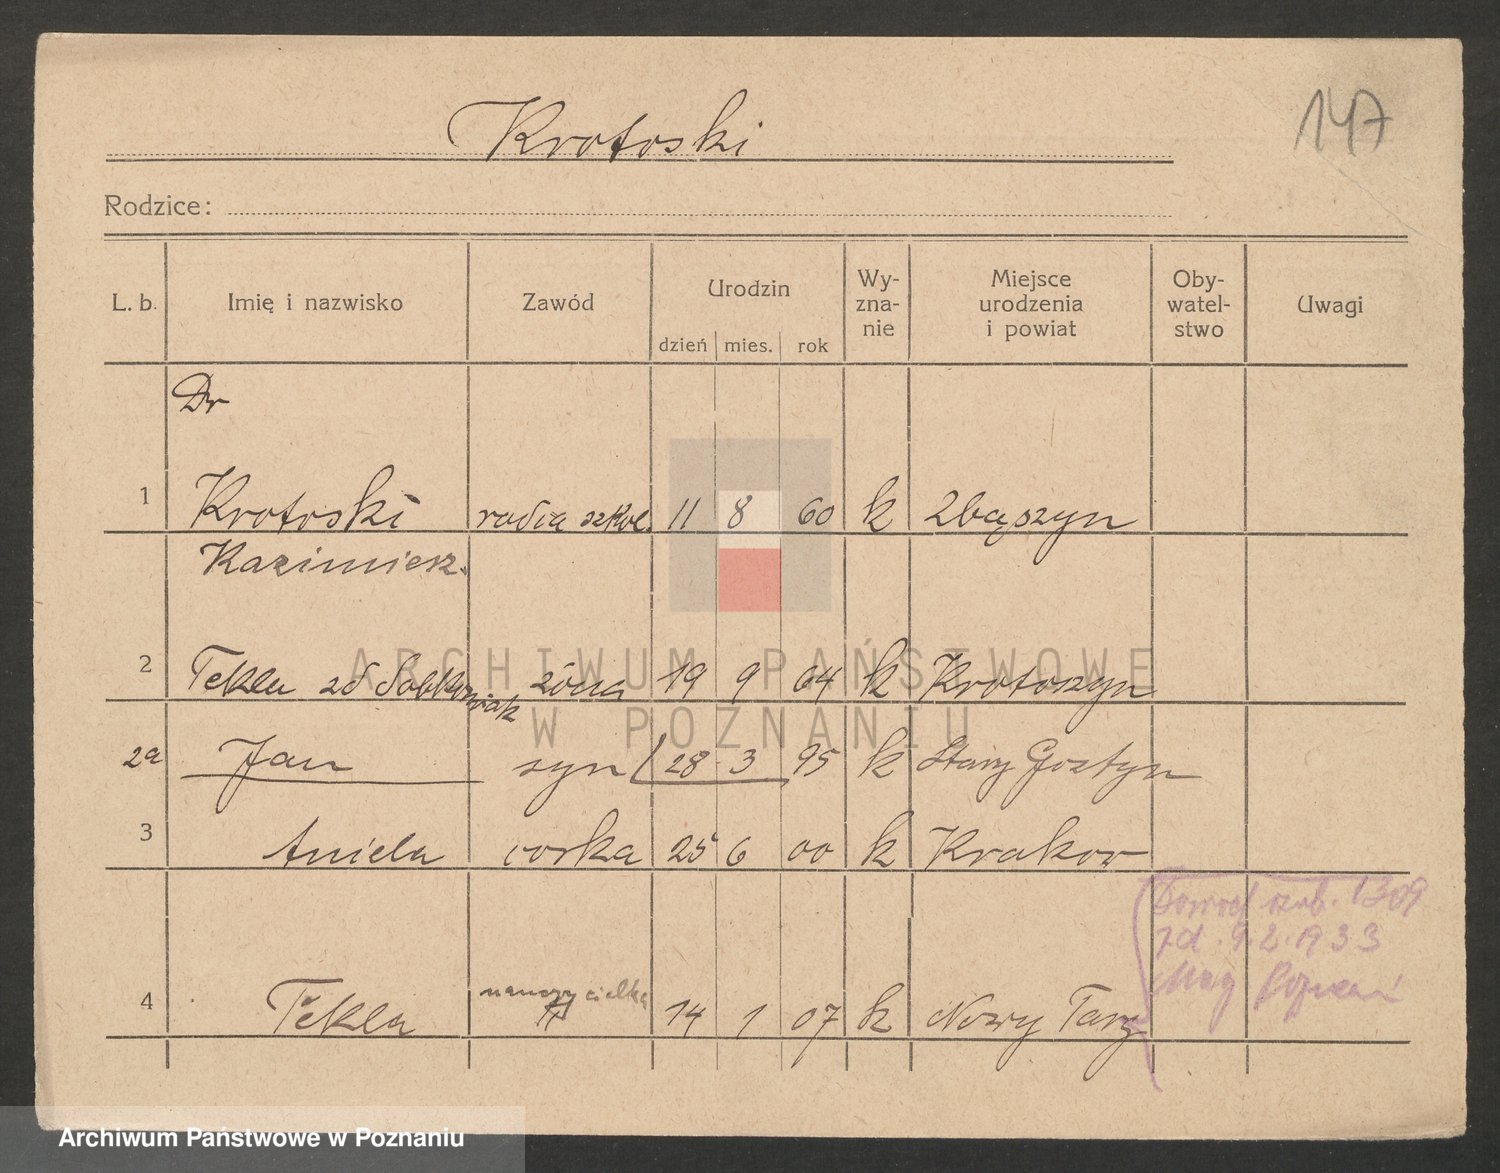 Krotoski
147
Rodzice:
L. b. Imię i nazwisko Zawód Urodzin dzień mies. rok Wy-zna-nie Miejsce urodzenia i powiat Oby-watel-stwo Uwagi
Dr
1 Krotoski radca szkol. 11 8 60 k Zbąszyn
Kazimierz.
2 Tekla zd Sobkowiak żona 19 9 64 k Krotoszyn
2a Jan syn 28 3 95 k Stary Gostyn
3 Aniela corka 25 6 00 k Krakow
4 Tekla nauczycielka 14 1 07 k Nowy Targ
Dowod osob. 1309
zd. 9.2.1933
Mag Poznań
ARCHIWUM PAŃSTWOWE
W POZNANIU
Archiwum Państwowe w Poznaniu